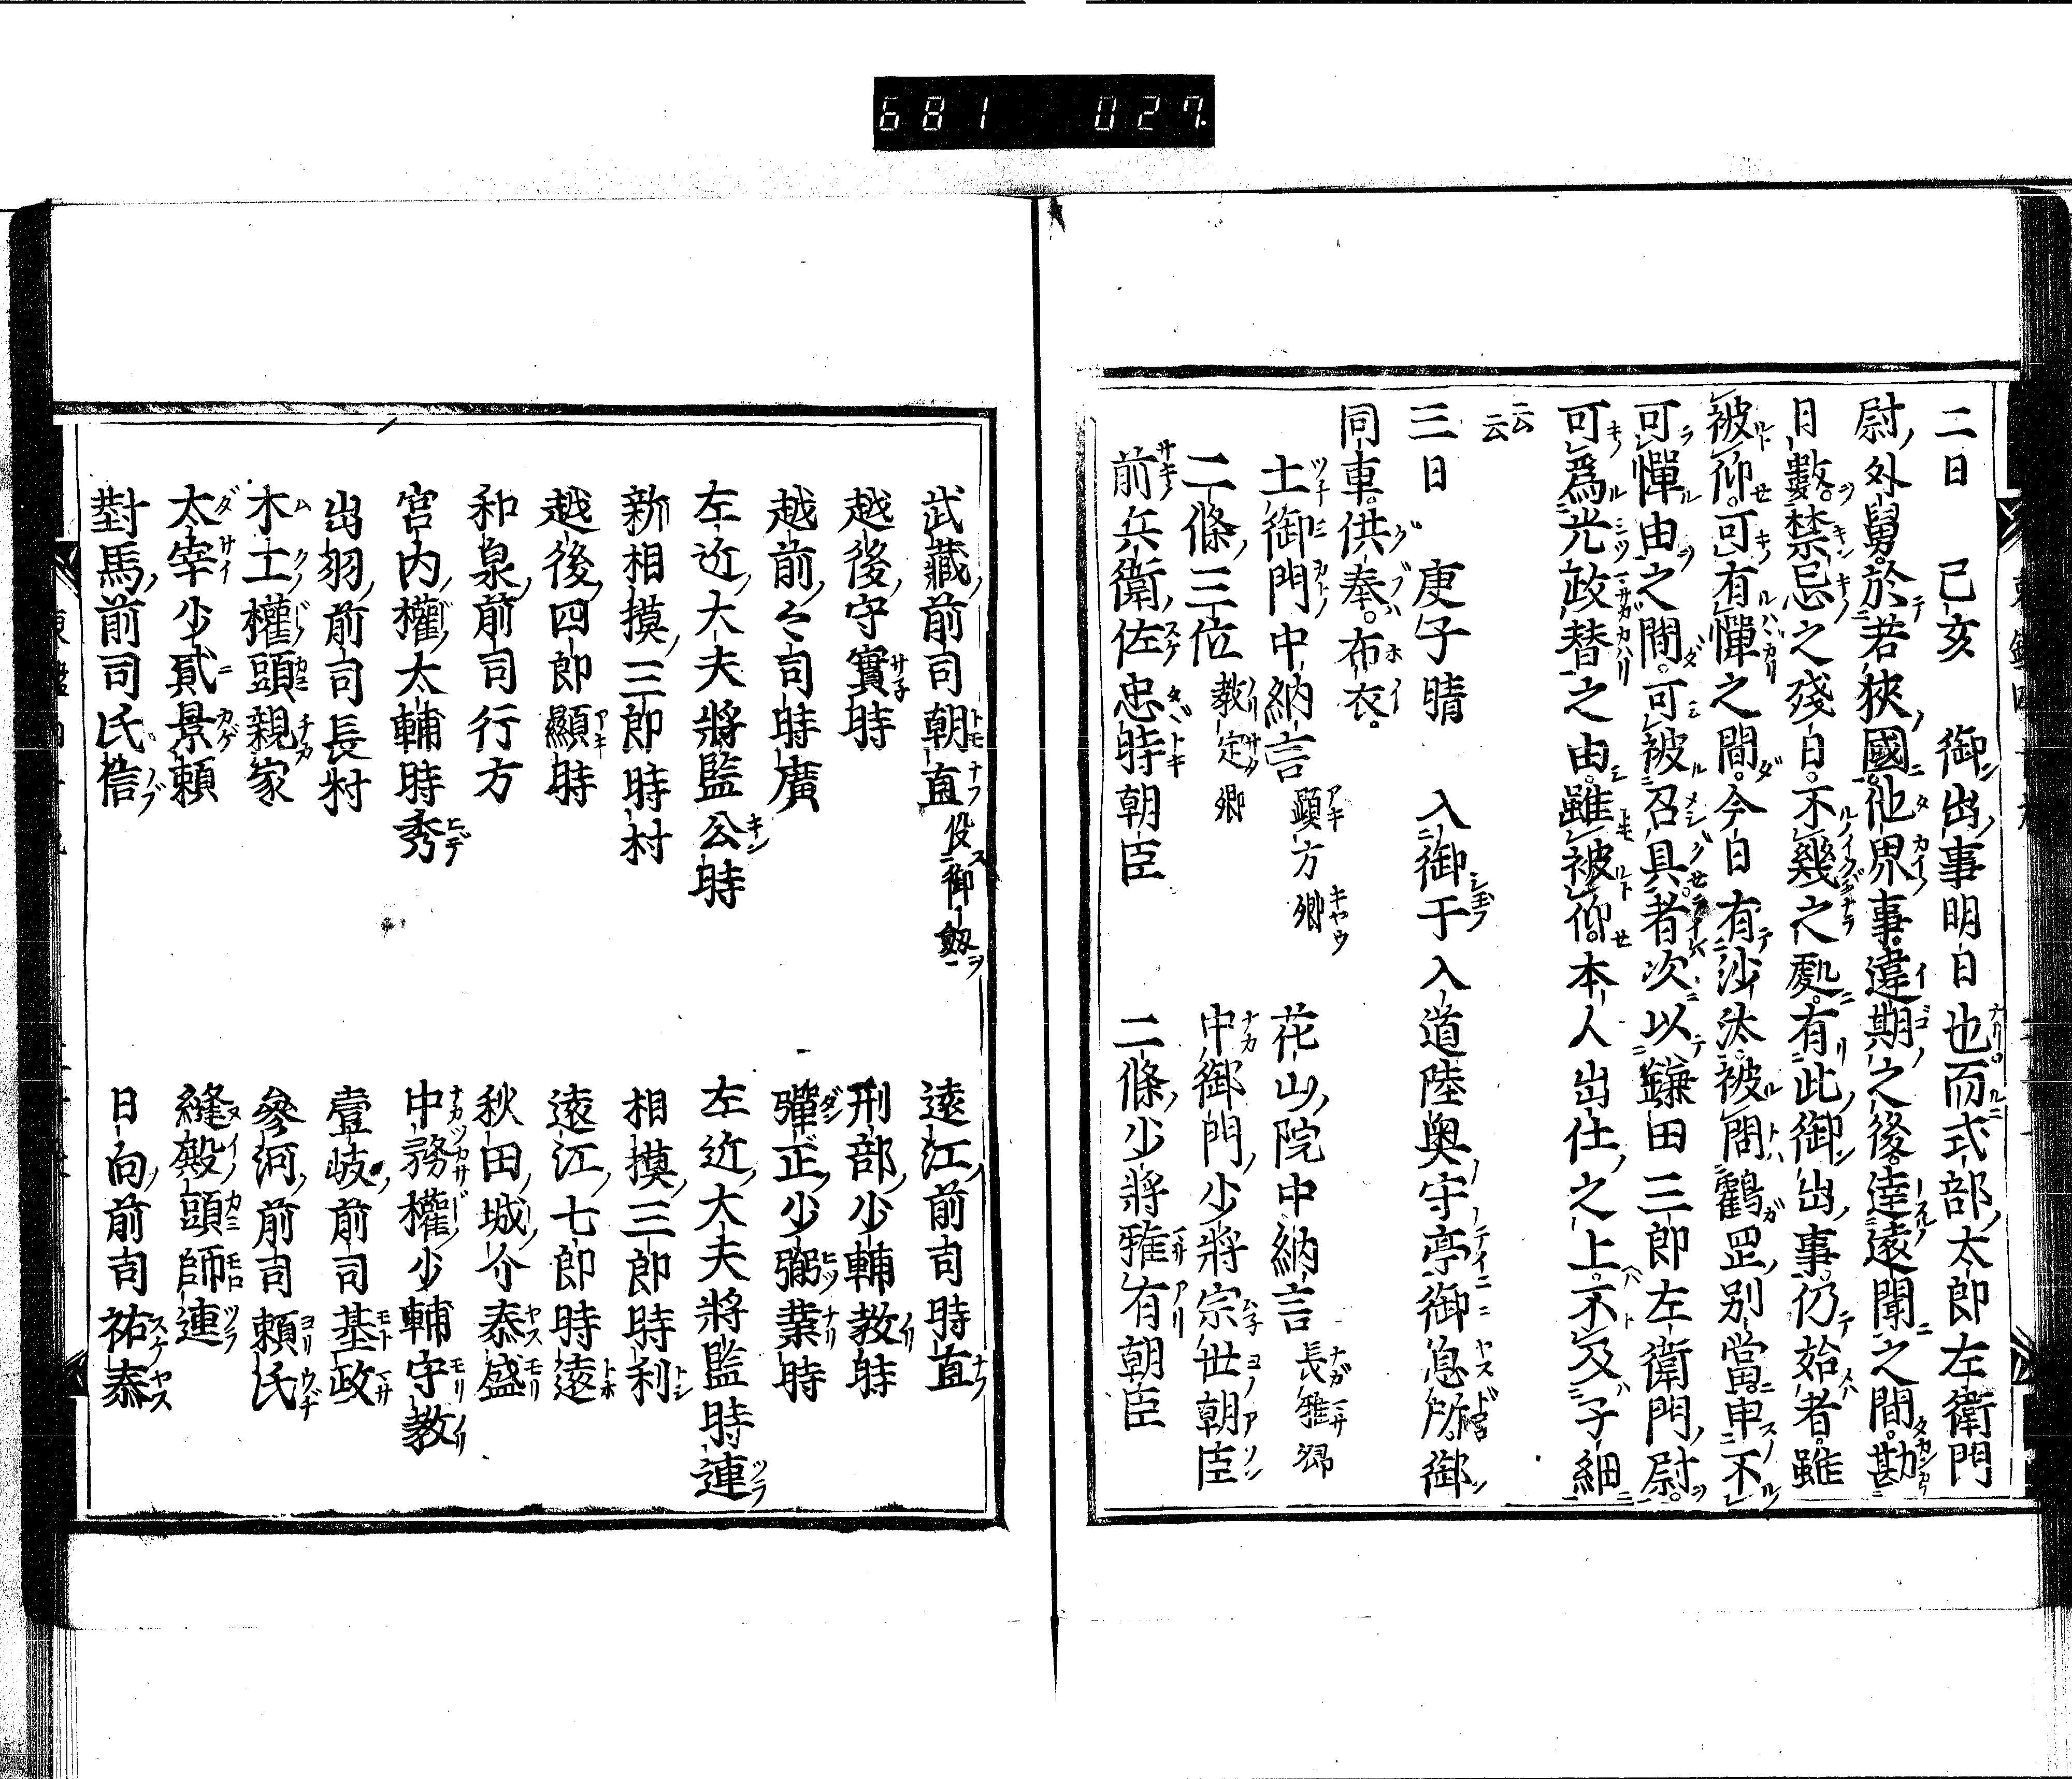 681 027
二日 己亥 御出事明日也而式部太郎左衛門
尉外舅於若狹國他界事違期之後達遠聞之間勘
日數禁忌之殘日不幾之處有此御出事仍始者雖
被仰可有憚之間今日有沙汰被問鶴罡別當申不
可憚由之間可被召具者次以鎌田三郎左衛門尉
可爲光政替之由雖被仰本人出仕之上不及子細
云云
三日 庚子晴 入御于入道陸奥守亭御息所御
同車供奉布衣
土御門中納言顕方卿 花山院中納言長雅卿
二條三位教定卿 中御門少將宗世朝臣
前兵衛佐忠時朝臣 二條少將雅有朝臣
武藏前司朝直役御劔 遠江前司時直
越後守實時 刑部少輔教時
越前々司時廣 彈正少弼業時
左近大夫將監公時 左近大夫將監時連
新相摸三郎時村 相摸三郎時利
越後四郎顯時 遠江七郎時遠
和泉前司行方 秋田城介泰盛
宮内權太輔時秀 中務權少輔守教
出羽前司長村 壹岐前司基政
木工權頭親家 參河前司頼氏
太宰少貳景頼 縫殿頭師連
對馬前司氏信 日向前司祐泰